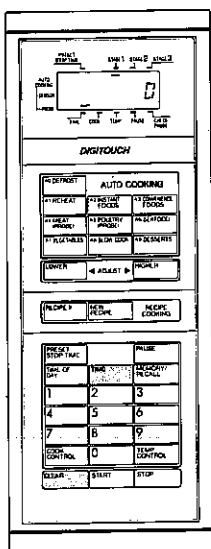 PRESET START TIME
STAGE 1 STAGE 2 STAGE 3
AUTO COOKING
SENSOR
PROBE
0
TIME COOK TEMP PAUSE CHECK PROBE
DIGITOUCH
#0 DEFROST AUTO COOKING
#1 REHEAT #2 INSTANT FOODS #3 CONVENIENCE FOODS
#4 MEAT (PROBE) #5 POULTRY (PROBE) #6 SEAFOOD
#7 VEGETABLES #8 SLOW COOK #9 DESSERTS
LOWER ◄ ADJUST ► HIGHER
RECIPE # NEW RECIPE RECIPE COOKING
PRESET STOP TIME PAUSE
TIME OF DAY TIME MEMORY/RECALL
1 2 3
4 5 6
7 8 9
COOK CONTROL 0 TEMP CONTROL
CLEAR START STOP